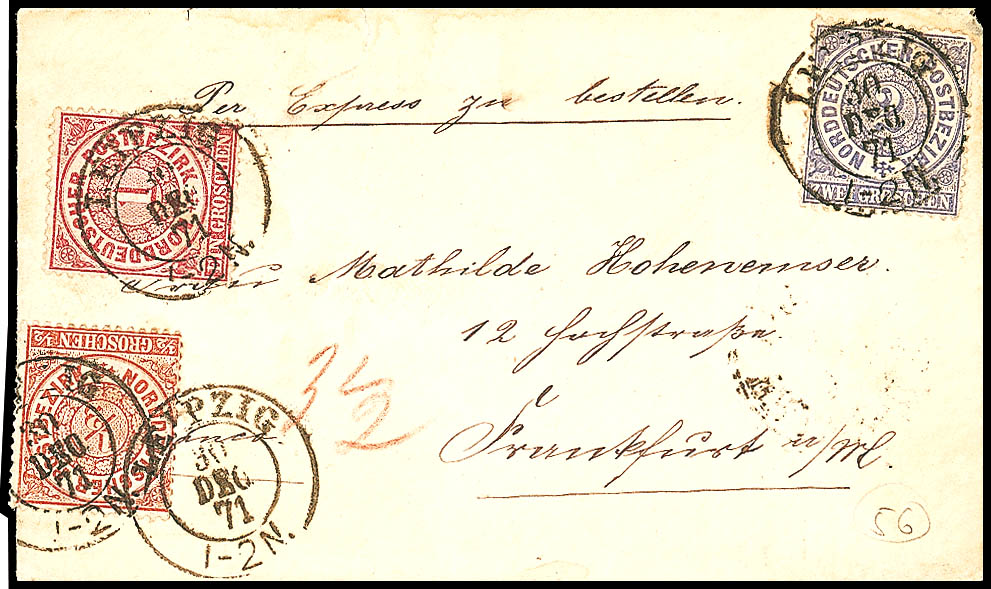 Per Express zu bestellen.
NORDDEUTSCHER POSTBEZIRK
ZWEI GROSCHEN
30
DEC
71
1-2N.
NORDDEUTSCHER POSTBEZIRK
1
EIN GROSCHEN
LEIPZIG
30
DEC
71
1-2N.
Mathilde Hohenemser.
12 Hochstraße.
Frankfurt a/M.
1/2 GROSCHEN 1/2
30
DEC
71
1-2N.
3 1/2
LEIPZIG
30
DEC
71
1-2N.
56